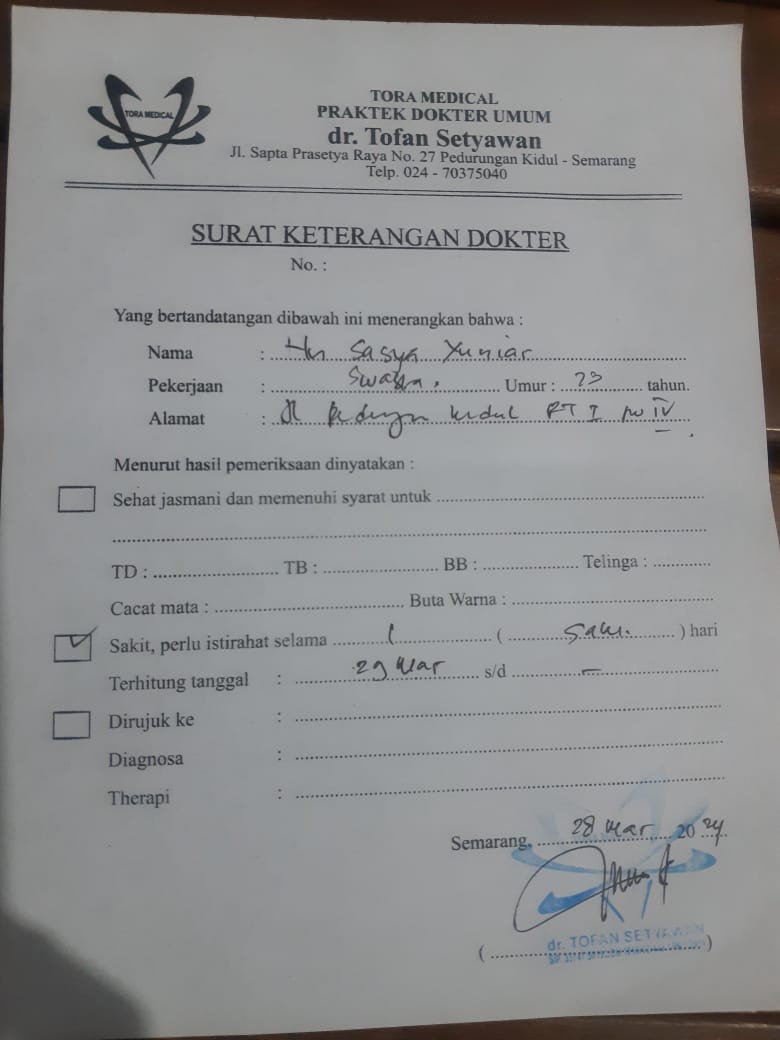 TORA MEDICAL
TORA MEDICAL
PRAKTEK DOKTER UMUM
dr. Tofan Setyawan
Jl. Sapta Prasetya Raya No. 27 Pedurungan Kidul - Semarang
Telp. 024 - 70375040
SURAT KETERANGAN DOKTER
No. :
Yang bertandatangan dibawah ini menerangkan bahwa :
Nama : Sasya Yuniar
Pekerjaan : Swasta. Umur : 23 tahun.
Alamat : Jl Kidul RT I RW IV
Menurut hasil pemeriksaan dinyatakan :
Sehat jasmani dan memenuhi syarat untuk
TD : TB : BB : Telinga :
Cacat mata : Buta Warna :
Sakit, perlu istirahat selama 1 ( satu. ) hari
Terhitung tanggal : 29 Mar s/d –
Dirujuk ke :
Diagnosa :
Therapi :
Semarang, 28 Mar 2024
dr. TOFAN SETYAWAN